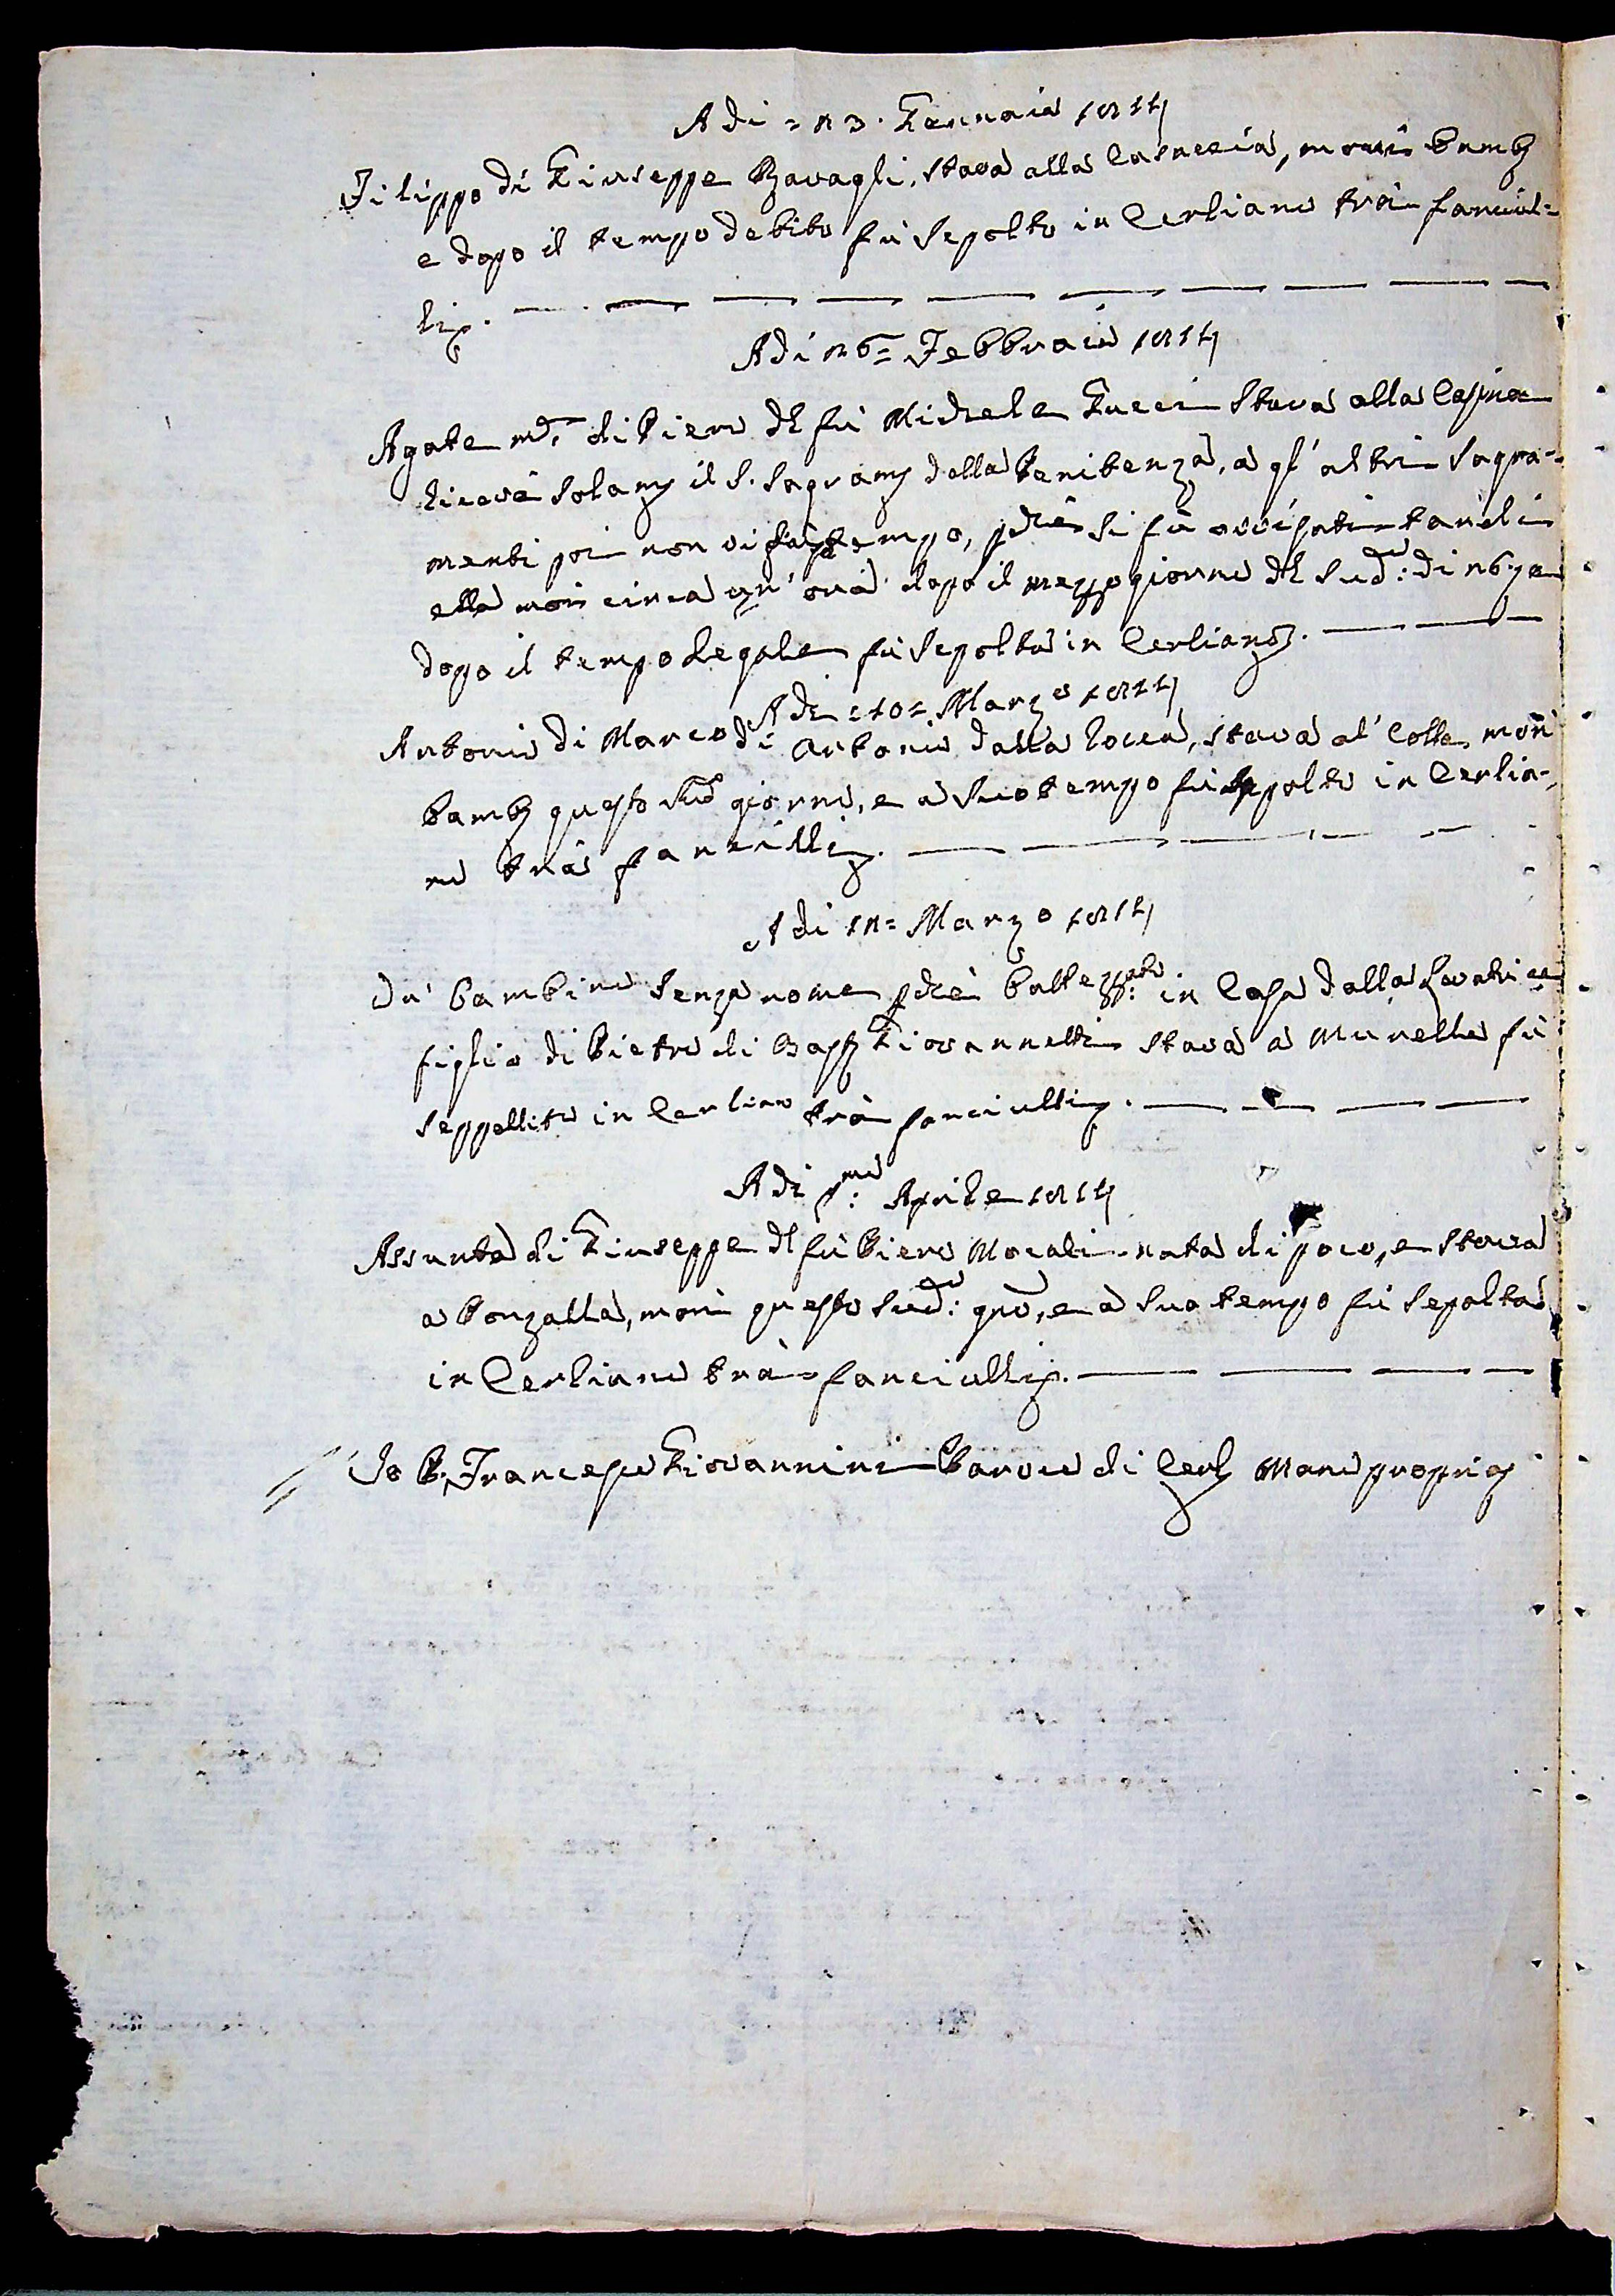 Adi = 23. Gennaio 1814
Filippo di Giuseppe Bavagli, stava alla Casaccia, morì bamb
e dopo il tempo debito fù sepolto in Cerliano trà fanciul=
li.
Adi 26= Febbraio 1814
Agate md.e di Piero dl fù Michele Gucci stava alla Casina
ricevè solam il S. Sagram della Penitenza, a gl'altri Sagra=
menti poi non vi fù tempo, pchè si fù avvisati tardi
ella morì circa un'ora dopo il mezzo giorno dl sudo: di 26. e
dopo il tempo legale fù sepolta in Cerliano.
Adi =10= Marzo 1814
Antonio di Marco di Antonio dalla Rocca, stava al' Colle, morì
bamb questo sudo giorno, e a suo tempo fù sepolto in Cerlia-
no trà fanciulli.
Adi 12= Marzo 1814
Un' bambino senza nome pchè battezzato: in Casa dalla Levatrice
figlio di Pietro di Bast Giovannetti stava a Munello fù
seppellito in Cerliano trà fanciulli.
Adi pmo: Aprile 1814
Assunta di Giuseppe dl fù Piero Mocali nata di poco, e stava
a Conzalla, morì questo sudo: gno, e a suo tempo fù sepolta
in Cerliano trà fanciulli.
Io P. Francesco Giovannini Paroco di Cerl mano propria